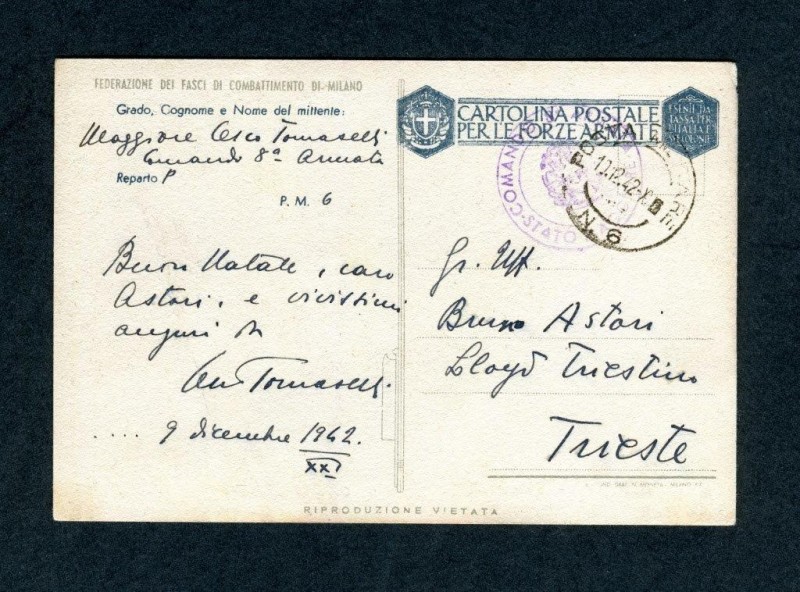 FEDERAZIONE DEI FASCI DI COMBATTIMENTO DI MILANO
Grado, Cognome e Nome del mittente:
Maggiore Cesco Tomaselli
Comando 8ª Armata
Reparto P
P. M. 6
Buon Natale, caro
Astori, e vivissimi
auguri
Tomaselli
.... 9 dicembre 1942
XXI
CARTOLINA POSTALE
PER LE FORZE ARMATE
ESENTE DA
TASSA PER
L'ITALIA E
COLONIE
COMANDO
STATO
POSTA MILITARE
10.12.42-XXI
N. 6
Gr. Uff.
Bruno Astori
Lloyd Triestino
Trieste
RIPRODUZIONE VIETATA